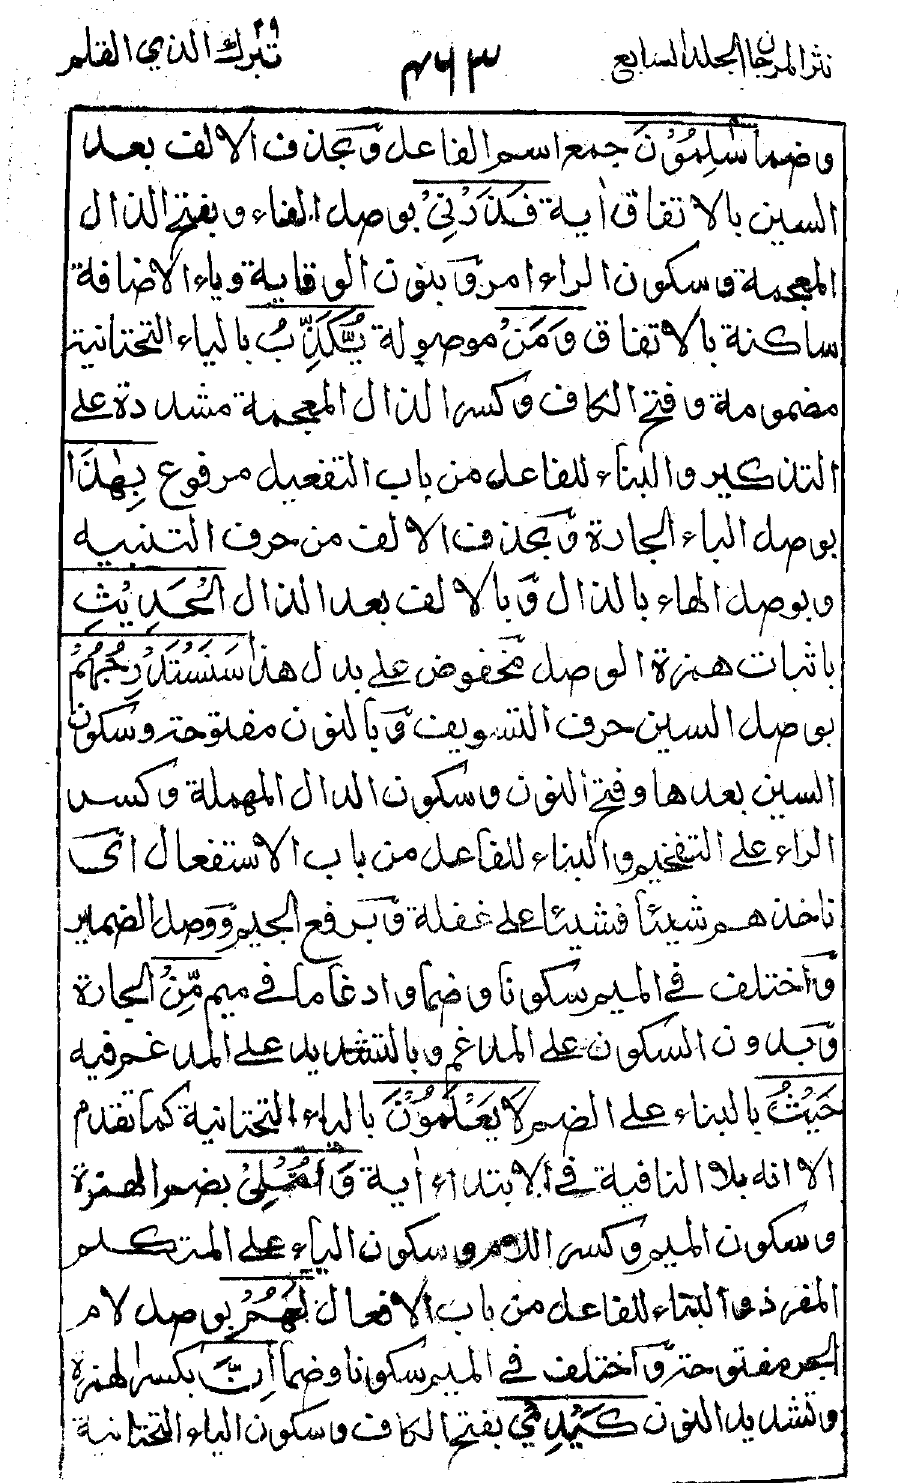 نثر المرجان المجلد السابع
٤٦٣
تبرك الذي القلم
وضما سٰلِمُوْنَ جمع اسم الفاعل وَّبحذف الالف بعد
السين بالاتفاق اٰية فَذَرْنِيْ بوصل الفاء و بفتح الذال
المعجمة و سكون الراء امر وَّبنون الوقاية وياء الاضافة
ساكنة بالاتفاق وَمَنْ موصولة يُّكَذِّبُ بالياء التحتانية
مضمومة و فتح الكاف و كسر الذال المعجمة مشددة على
التذكير والبناء للفاعل من باب التفعيل مرفوع بِهٰذَا
بوصل الباء الجارة وَّبحذف الالف من حرف التنبيه
و بوصل الهاء بالذال وَّبالالف بعد الذال الْحَدِيْثِ
باثبات همزة الوصل مخفوض على بدل هذا سَنَسْتَدْرِجُهُمْ
بوصل السين حرف التسويف وَّبالنون مفتوحة وسكون
السين بعدها و فتح النون و سكون الدال المهملة وكسر
الراء على التفخيم والبناء للفاعل من باب الاستفعال اى
ناخذهم شيئا فشيئا على غفلة وَّبرفع الجيم وَّوصل الضمير
وَّاختلف في الميم سكونا وضما وادغاما في ميم مِّنْ الجارة
وَّبدون السكون على المدغم و بالتشديد على المدغم فيه
حَيْثُ بالبناء على الضم لَا يَعْلَمُوْنَ بالياء التحتانية كما تقدم
الا انه بلا النافية في الابتداء اٰية وَاُمْلِيْ بضم الهمزة
و سكون الميم وكسر اللام و سكون الياء على المتكلم
المفرد والبناء للفاعل من باب الافعال لَهُمْ بوصل لام
الجر مفتوحة وَّاختلف في الميم سكونا وضما اِنَّ بكسر الهمزة
وتشديد النون كَيْدِيْ بفتح الكاف و سكون الياء التحتانية